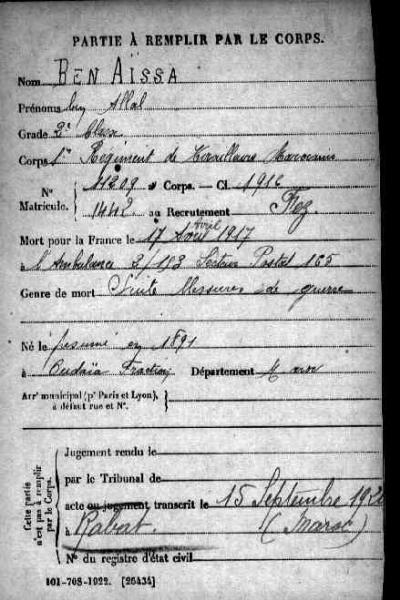 PARTIE À REMPLIR PAR LE CORPS.
Nom BEN AÏSSA
Prénoms ben Allal
Grade 2e Classe
Corps 1er Régiment de Tirailleurs Marocains
N° Matricule. { 11209 au Corps. — Cl. 1916
1442 au Recrutement Fez
Avril
Mort pour la France le 17 Avril 1917
à l'Ambulance 2/153 Secteur Postal 165
Genre de mort Suite blessures de guerre
Né le présumé en 1891
à Oudaïa Fraction Département Maroc
Arrt municipal (pr Paris et Lyon), à défaut rue et N°. {
Cette partie n'est pas à remplir par le Corps. {
Jugement rendu le
par le Tribunal de
acte ou jugement transcrit le 15 Septembre 192
à Rabat. (Maroc)
N° du registre d'état civil
101-708-1922. [26434]